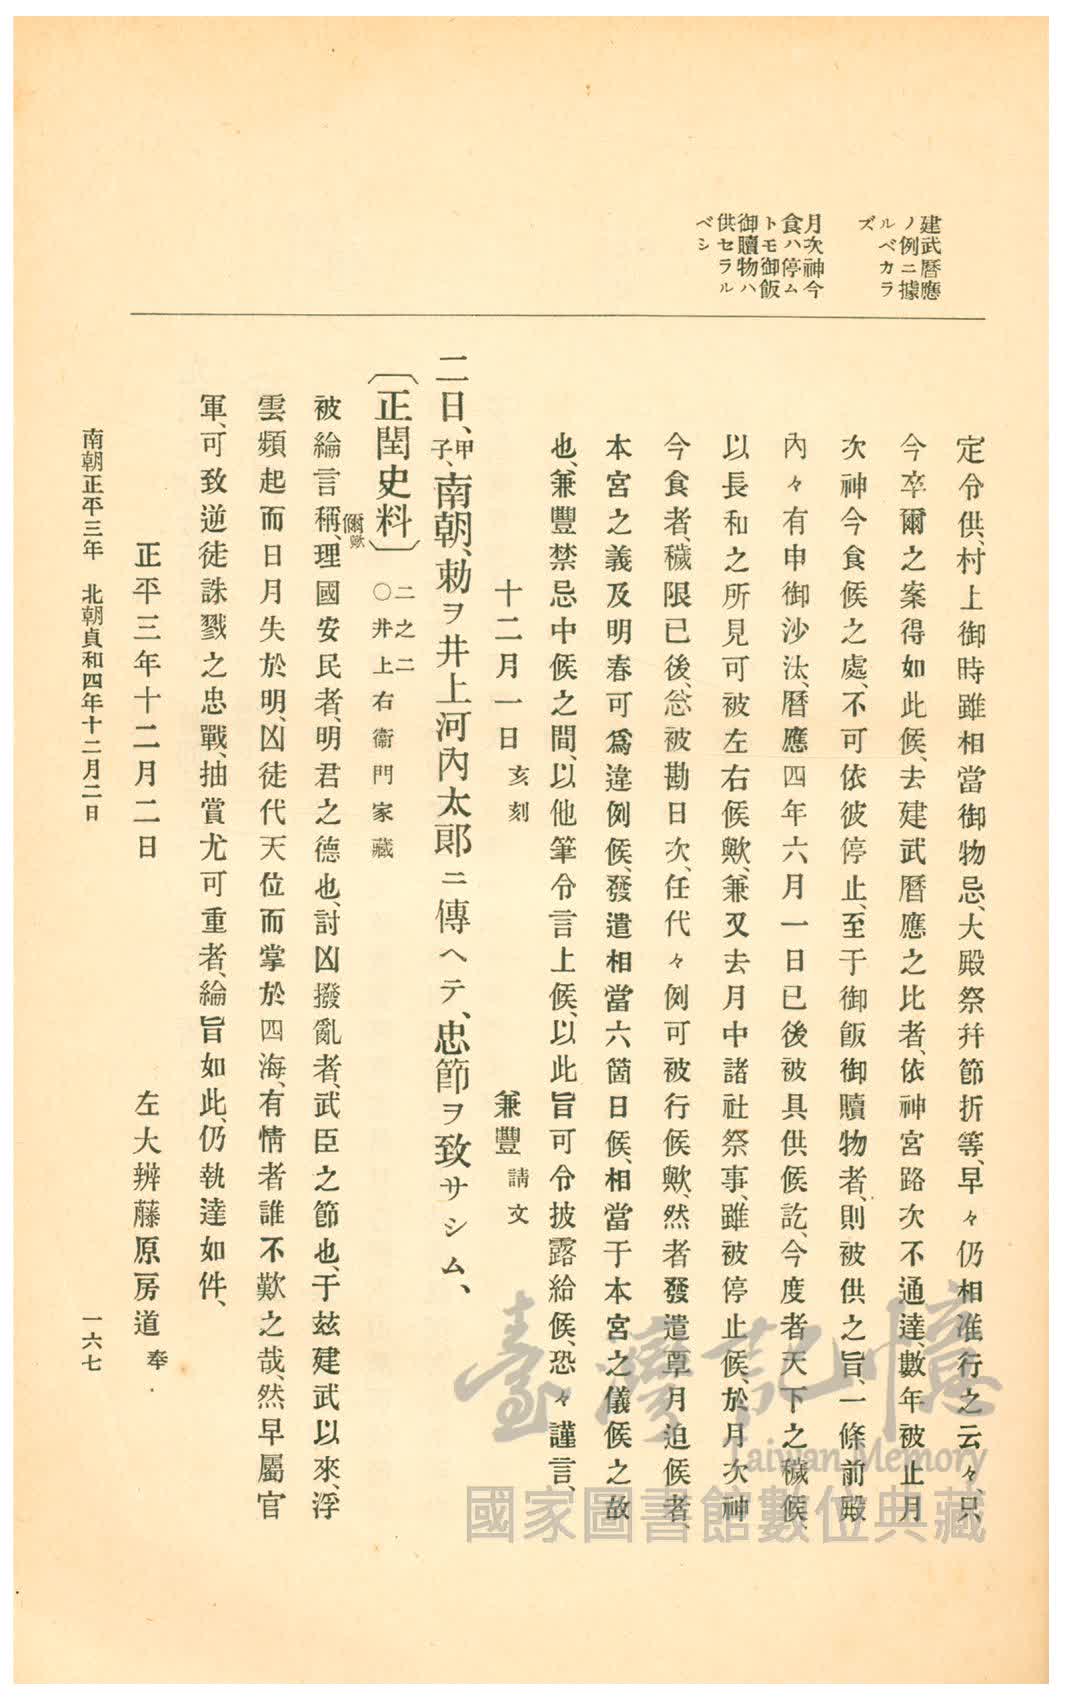 建武曆應
ノ例ニ據
ルベカラ
ズ
月次神今
食ハ停ム
トモ御飯
御贖物ハ
供セラル
ベシ
定令供、村上御時雖相當御物忌、大殿祭幷節折等、早々仍相准行之云々、只
今卒爾之案得如此候、去建武曆應之比者、依神宮路次不通達、數年被止月
次神今食候之處、不可依彼停止、至于御飯御贖物者、則被供之旨、一條前殿
內々有申御沙汰、曆應四年六月一日已後被具供候訖、今度者天下之穢候、
以長和之所見可被左右候歟、兼又去月中諸社祭事、雖被停止候、於月次神
今食者、穢限已後、忩被勘日次、任代々例可被行候歟、然者發遣覃月迫候者、
本宮之義及明春可爲違例候、發遣相當六箇日候、相當于本宮之儀候之故
也、兼豐禁忌中候之間、以他筆令言上候、以此旨可令披露給候、恐々謹言、
十二月一日亥刻　兼豐請文
二日、甲子、南朝、勅ヲ井上河內太郎ニ傳ヘテ、忠節ヲ致サシム、
〔正閏史料〕二之二○井上右衞門家藏
被綸言稱、爾歟理國安民者、明君之德也、討凶撥亂者、武臣之節也、于玆建武以來、浮
雲頻起而日月失於明、凶徒代天位而掌於四海、有情者誰不歎之哉、然早屬官
軍、可致逆徒誅戮之忠戰、抽賞尤可重者、綸旨如此、仍執達如件、
正平三年十二月二日　左大辨藤原房道奉
南朝正平三年　北朝貞和四年十二月二日　一六七
臺灣記憶
Taiwan Memory
國家圖書館數位典藏